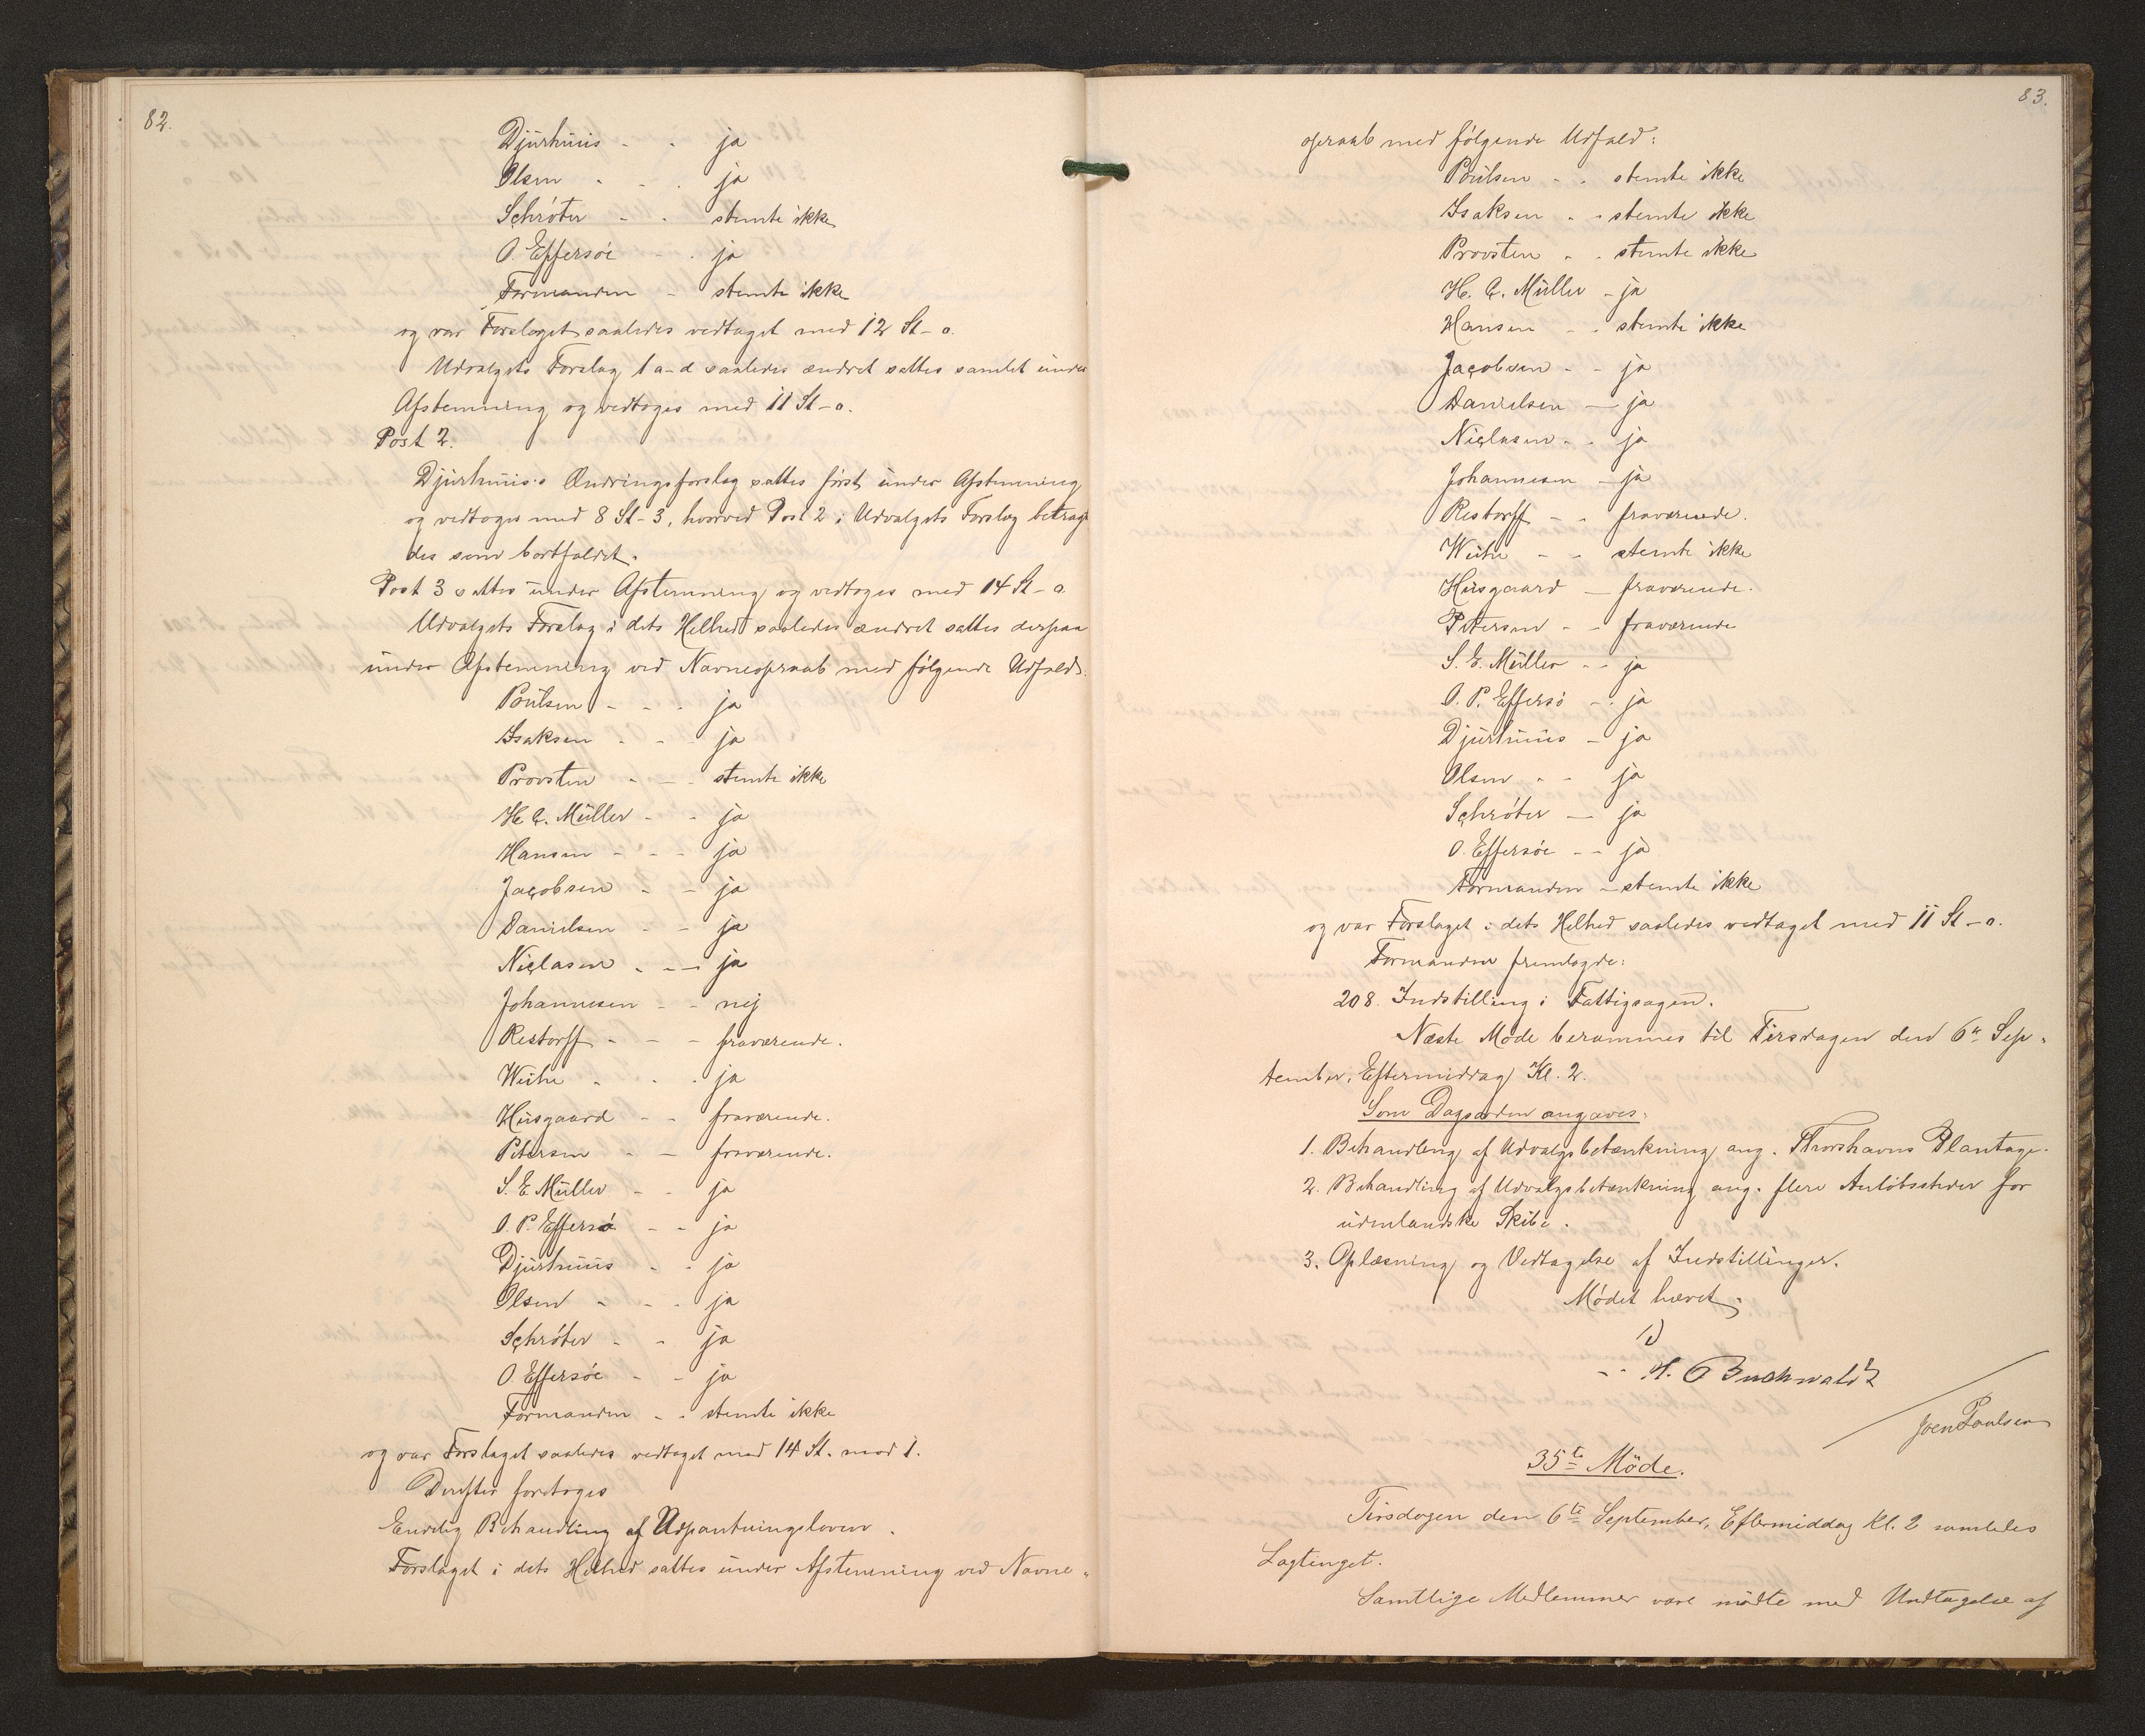 82.
Djurhuus - - ja
Olsen - - - ja
Schröter - - stemte ikke
O. Effersöe - - ja
Formanden - stemte ikke
og var Forslaget saaledes vedtaget med 12 St - 0.
Udvalgets Forslag 1 a-d saaledes ændret sattes samlet under
Afstemning og vedtoges med 11 St - 0.
Post 2.
Djurhuus's Ændringsforslag sattes först under Afstemning
og vedtoges med 8 St - 3, hvorved Post 2 i Udvalgets Forslag betrag-
des som bortfaldet.
Post 3 sattes under Afstemning og vedtoges med 14 St - 0
Udvalgets Forslag i dets Helhed saaledes ændret sattes derpaa
under Afstemning ved Navneopraab med fölgende Udfald:
Poulsen - - - ja
Isaksen - - - ja
Provsten - - - stemte ikke
H. C. Müller - - ja
Hansen - - - ja
Jacobsen - - ja
Danielsen - - ja
Niclasen - - - ja
Johannesen - - nej
Restorff - - - fraværende.
Weihe - - - ja
Husgaard - - fraværende.
Petersen - - fraværende.
S. E. Müller - - ja
O. P. Effersö - - ja
Djurhuus - - ja
Olsen - - - ja
Schröter - - ja
O. Effersöe - - ja
Formanden - - stemte ikke
og var Forslaget saaledes vedtaget med 14 St. mod 1.
Derefter foretoges
Endelig Behandling af Udpantningsloven.
Forslaget i dets Helhed sattes under Afstemning ved Navne-
83.
opraab med fölgende Udfald:
Poulsen - - stemte ikke
Isaksen - - stemte ikke
Provsten - - stemte ikke
H. C. Müller - ja
Hansen - - stemte ikke
Jacobsen - - ja
Danielsen - ja
Niclasen - - ja
Johannesen - ja
Restorff - - fraværende.
Weihe - - stemte ikke
Husgaard - fraværende.
Petersen - - fraværende
S. E. Müller - - ja
O. P. Effersö - - ja
Djurhuus - ja
Olsen - - ja
Schröter - ja
O. Effersöe - - ja
Formanden - stemte ikke
og var Forslaget i dets Helhed saaledes vedtaget med 11 St - 0.
Formanden fremlagde:
208. Indstilling i Fattigsagen.
Næste Möde berammes til Tirsdagen den 6te Sep-
tember, Eftermiddag Kl. 2.
Som Dagsorden angaves:
1. Behandling af Udvalgsbetænkning ang. Thorshavns Plantage.
2. Behandling af Udvalgsbetænkning ang. flere Anlöbssteder for
udenlandske Skibe.
3. Oplæsning og Vedtagelse af Indstillinger.
Mödet hævet.
H. Buchwaldt
Joen Poulsen
35te Möde.
Tirsdagen den 6te September, Eftermiddag Kl. 2 samledes
Lagtinget.
Samtlige Medlemmer vare mödte med Undtagelse af